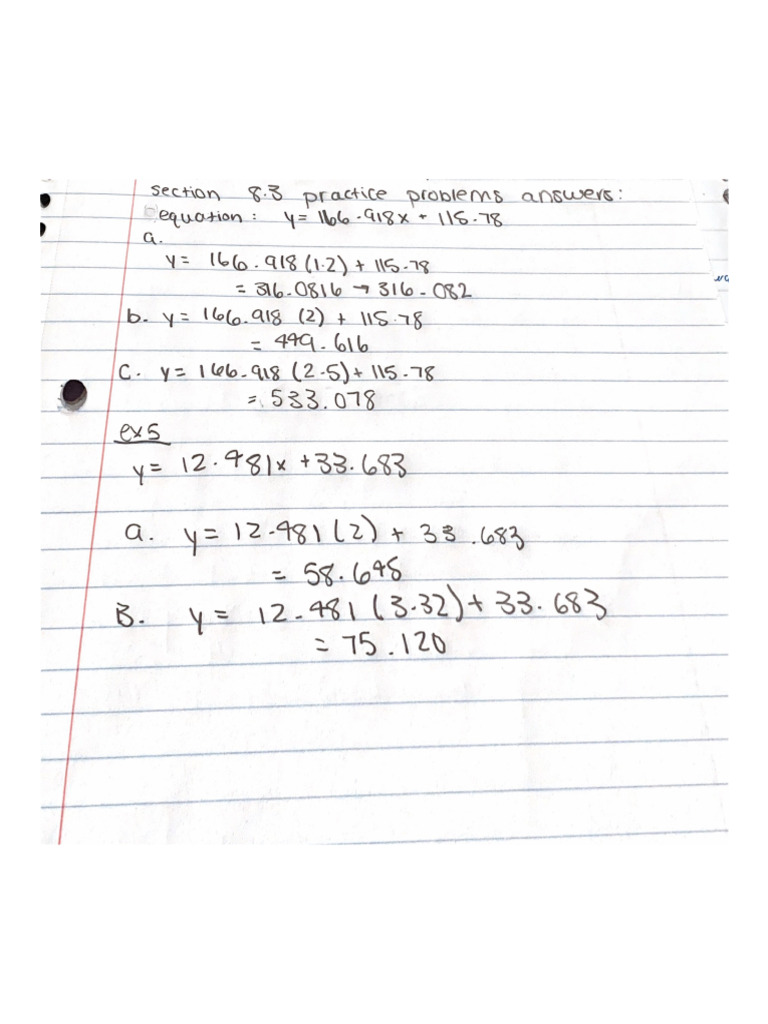 section 8.3 practice problems answers:
equation: y = 166.918x + 115.78
a.
y = 166.918 (1.2) + 115.78
= 316.0816 → 316.082
b. y = 166.918 (2) + 115.78
= 449.616
C. y = 166.918 (2.5) + 115.78
= 533.078
ex5
y = 12.481x + 33.683
a. y = 12.481 (2) + 33.683
= 58.645
B. y = 12.481 (3.32) + 33.683
= 75.120